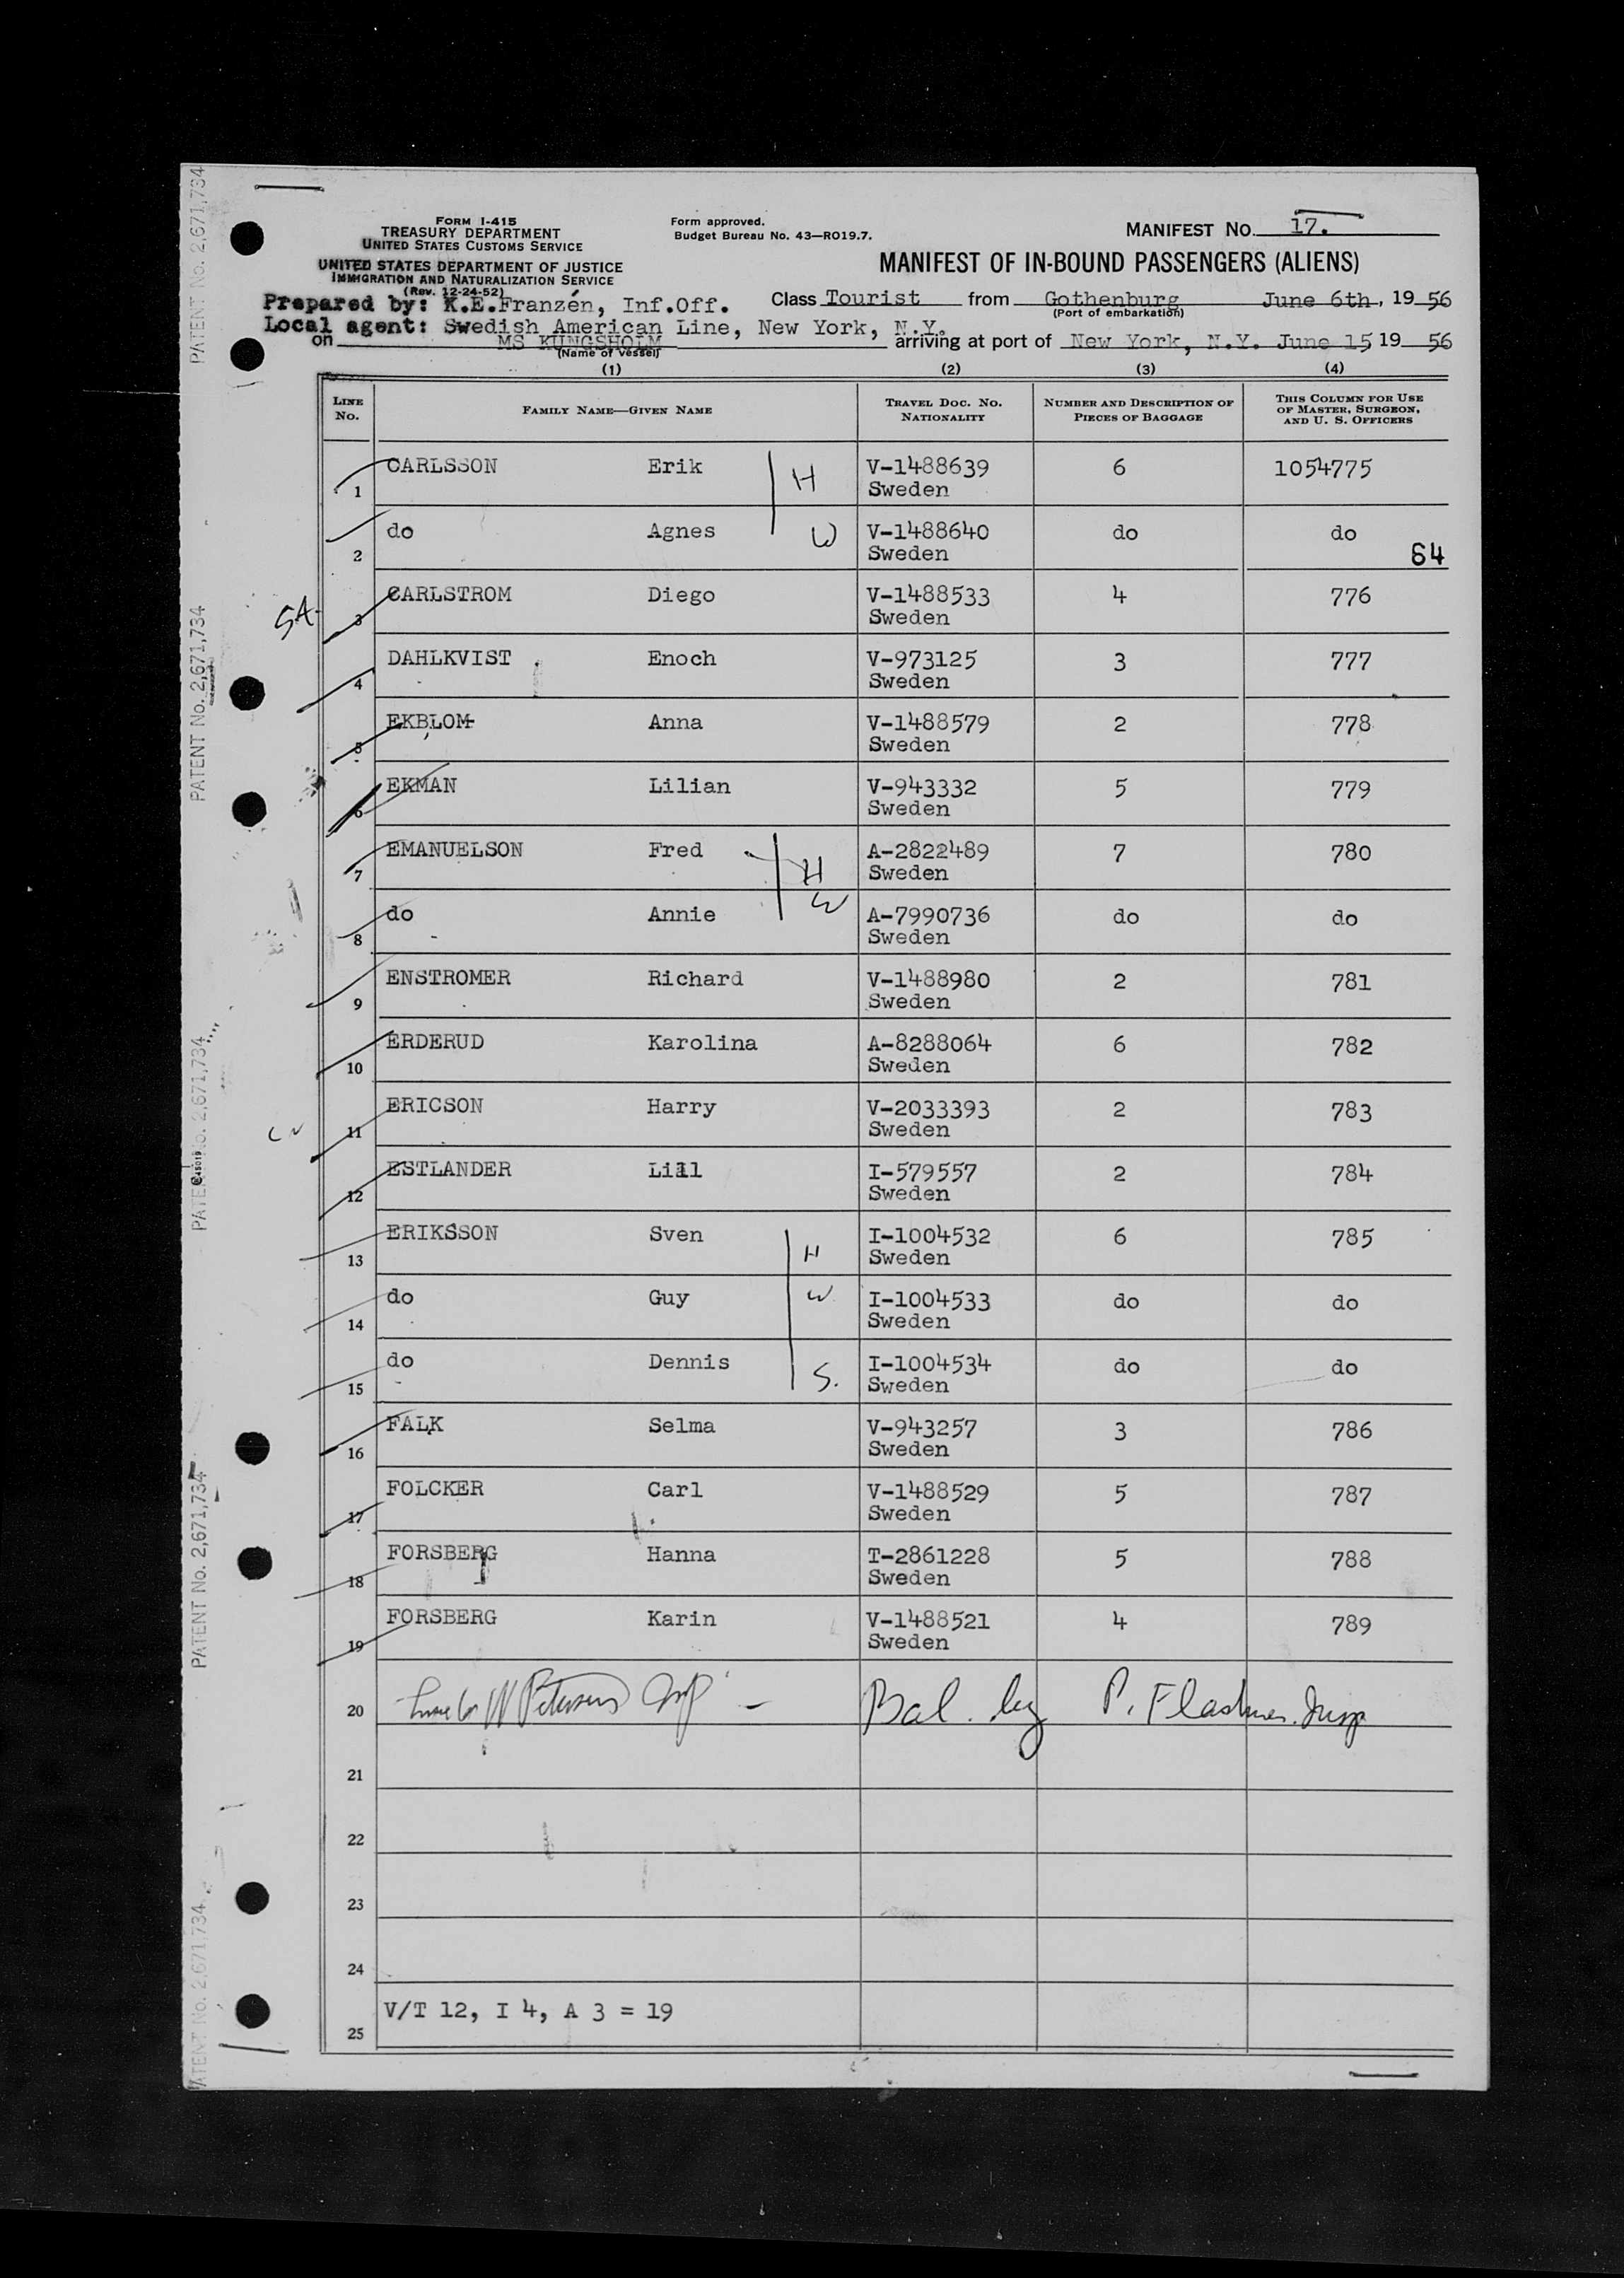 FORM I-415
TREASURY DEPARTMENT
UNITED STATES CUSTOMS SERVICE
UNITED STATES DEPARTMENT OF JUSTICE
IMMIGRATION AND NATURALIZATION SERVICE
(Rev. 12-24-52)
Form approved.
Budget Bureau No. 43—RO19.7.
MANIFEST NO. 17.
MANIFEST OF IN-BOUND PASSENGERS (ALIENS)
Prepared by: K.E.Franzén, Inf.Off.
Class Tourist from Gothenburg June 6th, 1956
(Port of embarkation)
Local agent: Swedish American Line, New York, N.Y.
on MS KUNGSHOLM arriving at port of New York, N.Y. June 15 1956
(Name of vessel)
(1) (2) (3) (4)
LINE NO. FAMILY NAME—GIVEN NAME TRAVEL DOC. NO. NATIONALITY NUMBER AND DESCRIPTION OF PIECES OF BAGGAGE THIS COLUMN FOR USE OF MASTER, SURGEON, AND U. S. OFFICERS
1 CARLSSON Erik H V-1488639 Sweden 6 1054775
2 do Agnes W V-1488640 Sweden do do 64
SA. 3 CARLSTROM Diego V-1488533 Sweden 4 776
4 DAHLKVIST Enoch V-973125 Sweden 3 777
5 EKBLOM Anna V-1488579 Sweden 2 778
6 EKMAN Lilian V-943332 Sweden 5 779
7 EMANUELSON Fred H A-2822489 Sweden 7 780
8 do Annie W A-7990736 Sweden do do
9 ENSTROMER Richard V-1488980 Sweden 2 781
10 ERDERUD Karolina A-8288064 Sweden 6 782
11 ERICSON Harry V-2033393 Sweden 2 783
12 ESTLANDER Lill I-579557 Sweden 2 784
13 ERIKSSON Sven H I-1004532 Sweden 6 785
14 do Guy W I-1004533 Sweden do do
15 do Dennis S. I-1004534 Sweden do do
16 FALK Selma V-943257 Sweden 3 786
17 FOLCKER Carl V-1488529 Sweden 5 787
18 FORSBERG Hanna T-2861228 Sweden 5 788
19 FORSBERG Karin V-1488521 Sweden 4 789
20 Bal. by P.
21
22
23
24
25 V/T 12, I 4, A 3 = 19
PATENT No. 2,671,734
PATENT No. 2,671,734
PATENT No. 2,671,734
PATENT No. 2,671,734
PATENT No. 2,671,734